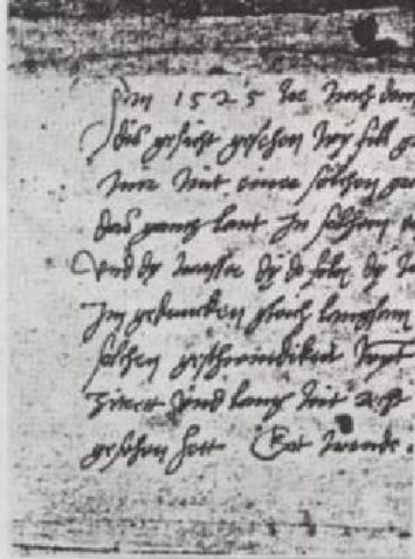 Im 1525 Jor noch dem
dis gesicht gesehen wy fill
mir mit einer solchen
das gancz lant In solchem
Vnd dy wasser dy do filn dy
Im gedancken gleich langsam
solchen geschwindikeit wynt
zitrett vnd lang nit recht
gesehen hett Got wende